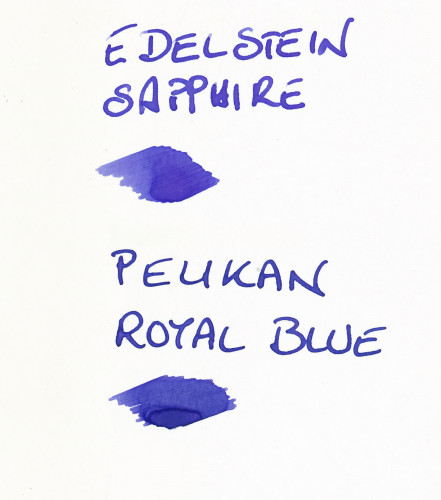 EDELSTEIN
SAPPHIRE
PELIKAN
ROYAL BLUE